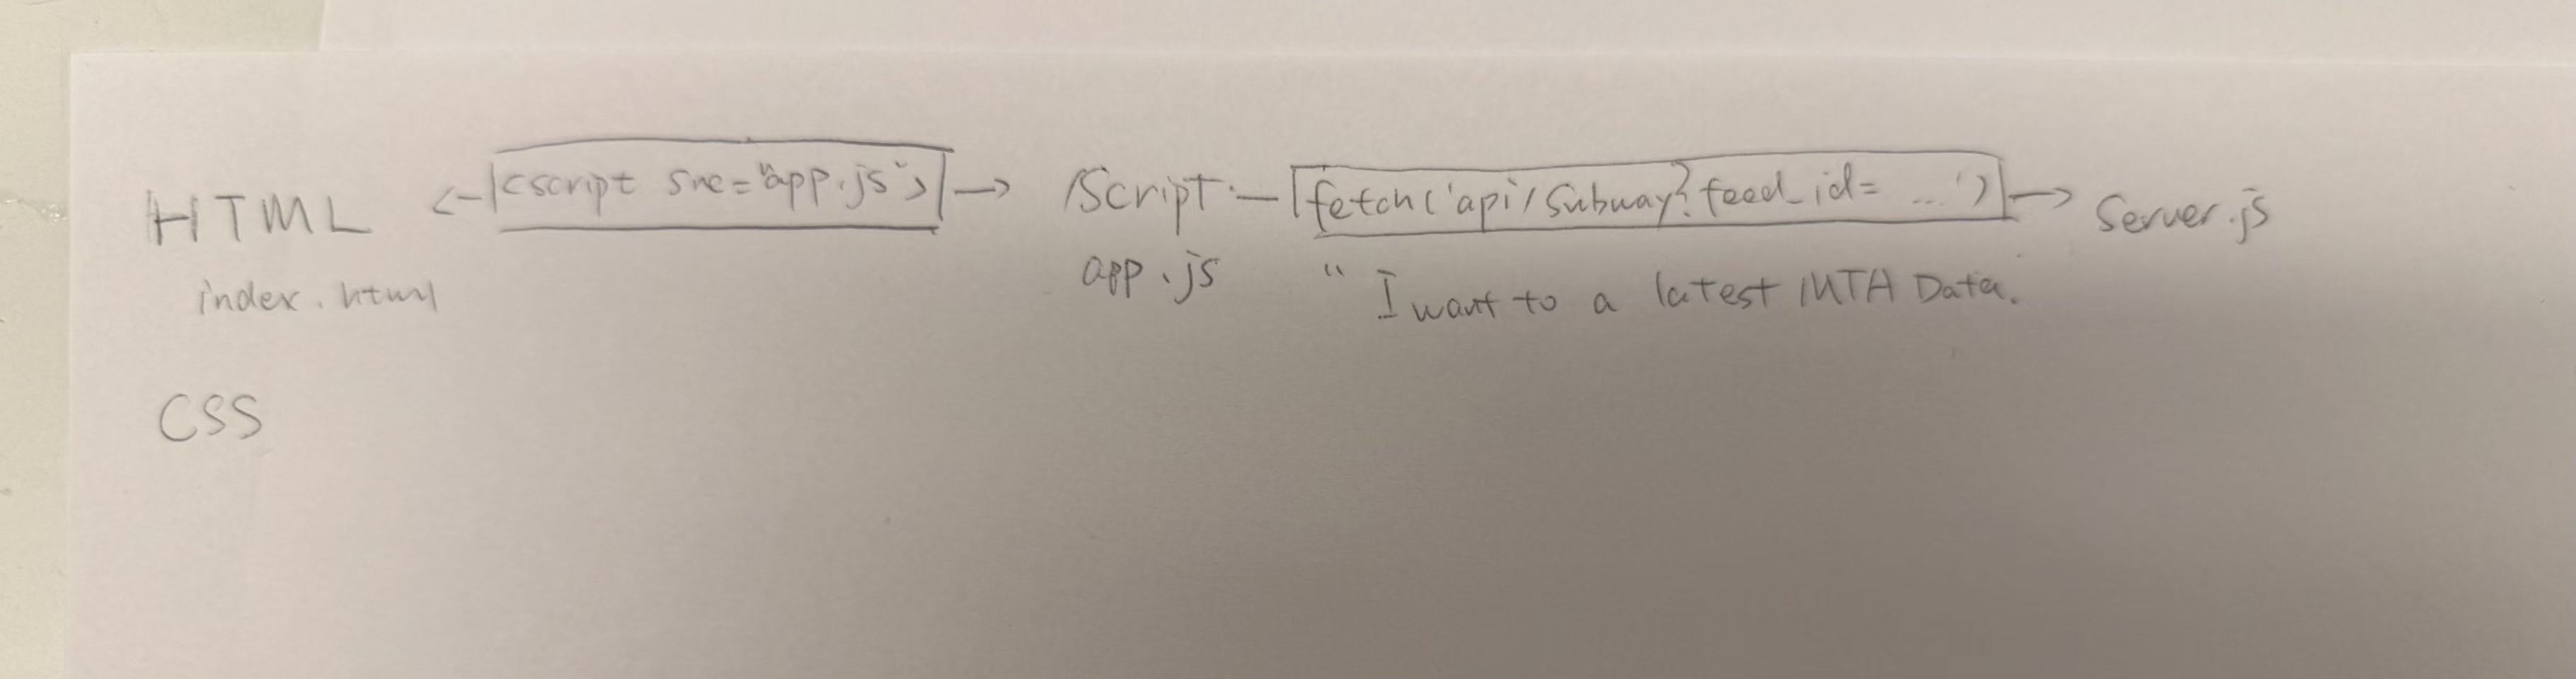 HTML <script src="app.js"> /Script fetch('api/subway?feed_id= ...') Server.js
index.html app.js " I want to a latest MTA Data.
CSS